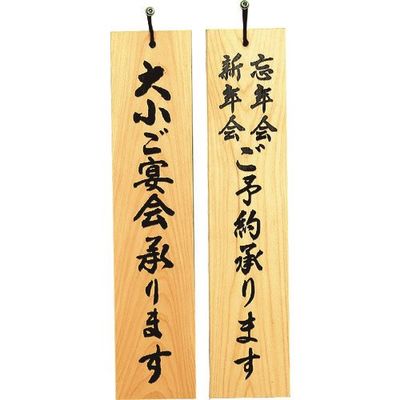 大小ご宴会承ります
忘年会
新年会
ご予約承ります